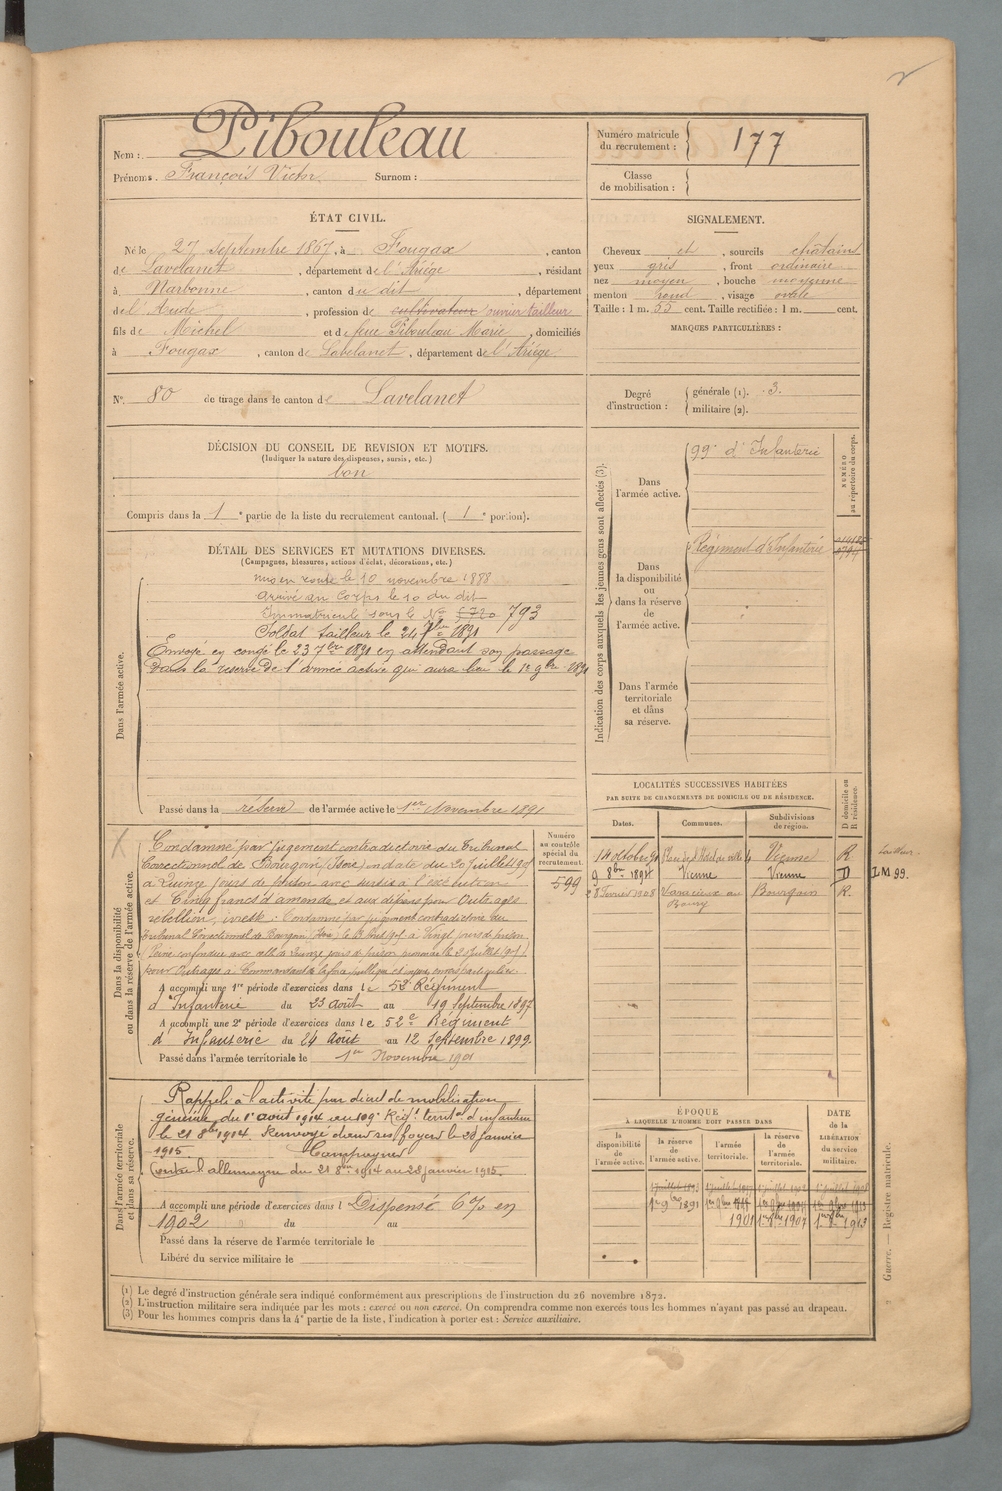 Nom : Pibouleau
Prénoms. François Victor Surnom :
Numéro matricule du recrutement : 177
Classe de mobilisation :
ÉTAT CIVIL.
Né le 27 septembre 1867, à Fougax, canton
de Lavelanet, département de l'Ariège, résidant
à Narbonne, canton du dit, département
de l'Aude, profession de cultivateur ouvrier tailleur
fils de Michel et de feue Pibouleau Marie, domiciliés
à Fougax, canton de Lavelanet, département de l'Ariège
SIGNALEMENT.
Cheveux et, sourcils châtains
yeux gris, front ordinaire
nez moyen, bouche moyenne
menton rond, visage ovale
Taille : 1 m. 55 cent. Taille rectifiée : 1 m. cent.
MARQUES PARTICULIÈRES :
N°. 80 de tirage dans le canton de Lavelanet
Degré d'instruction : générale (1). 3.
militaire (2).
DÉCISION DU CONSEIL DE REVISION ET MOTIFS.
(Indiquer la nature des dispenses, sursis, etc.)
bon
Compris dans la 1e partie de la liste du recrutement cantonal. (1e portion).
DÉTAIL DES SERVICES ET MUTATIONS DIVERSES.
(Campagnes, blessures, actions d'éclat, décorations, etc.)
Dans l'armée active.
mis en route le 10 novembre 1888
arrivé au Corps le 10 du dit
Immatriculé sous le No 793
Soldat tailleur le 24 7bre 1891
Envoyé en congé le 23 7bre 1891 en attendant son passage
dans la réserve de l'armée active qui aura lieu le 1er 9bre 1891
Passé dans la réserve de l'armée active le 1er Novembre 1891
Indication des corps auxquels les jeunes gens sont affectés (3).
NUMÉRO au répertoire du corps.
Dans l'armée active.
99e d'Infanterie
Dans la disponibilité ou dans la réserve de l'armée active.
Régiment d'Infanterie
Dans l'armée territoriale et dans sa réserve.
LOCALITÉS SUCCESSIVES HABITÉES
PAR SUITE DE CHANGEMENTS DE DOMICILE OU DE RÉSIDENCE.
D domicile ou R résidence.
Dates. Communes. Subdivisions de région.
Vienne R
9 8bre 1894 Vienne Vienne D I M 99.
Bourgoin R.
Dans la disponibilité ou dans la réserve de l'armée active.
Numéro au contrôle spécial du recrutement.
599
Condamné par jugement contradictoire du Tribunal
Correctionnel de Bourgoin (Isère) en date du 20 juillet 1905
à Quinze jours de prison avec sursis à l'exécution
et Cinq francs d'amende et aux dépens pour Outrages
rebellion, ivresse. Condamné par jugement contradictoire du
Tribunal Correctionnel de Bourgoin (Isère) à Vingt jours de prison
A accompli une 1re période d'exercices dans le 52e Régiment
d'Infanterie du 23 Août au 19 septembre 1897
A accompli une 2e période d'exercices dans le 52e Régiment
d'Infanterie du 24 Août au 12 Septembre 1899.
Passé dans l'armée territoriale le 1er Novembre 1901
Dans l'armée territoriale et dans sa réserve.
Rappelé à l'activité par décret de mobilisation
générale du 1er août 1914 au 109e Régt territal d'infanterie
le 21 8bre 1914. Renvoyé dans ses foyers le 28 janvier
1915. Campagnes
Contre l'allemagne du 21 8bre 1914 au 28 janvier 1915.
A accompli une période d'exercices dans l Dispensé 6% en
1902 du au
Passé dans la réserve de l'armée territoriale le
Libéré du service militaire le
ÉPOQUE
À LAQUELLE L'HOMME DOIT PASSER DANS
la disponibilité de l'armée active. la réserve de l'armée active. l'armée territoriale. la réserve de l'armée territoriale.
DATE de la LIBÉRATION du service militaire.
1er 9bre 1891
1901 1er 9bre 1907 1913
Guerre. — Registre matricule.
(1) Le degré d'instruction générale sera indiqué conformément aux prescriptions de l'instruction du 26 novembre 1872.
(2) L'instruction militaire sera indiquée par les mots : exercé ou non exercé. On comprendra comme non exercés tous les hommes n'ayant pas passé au drapeau.
(3) Pour les hommes compris dans la 4e partie de la liste, l'indication à porter est : Service auxiliaire.